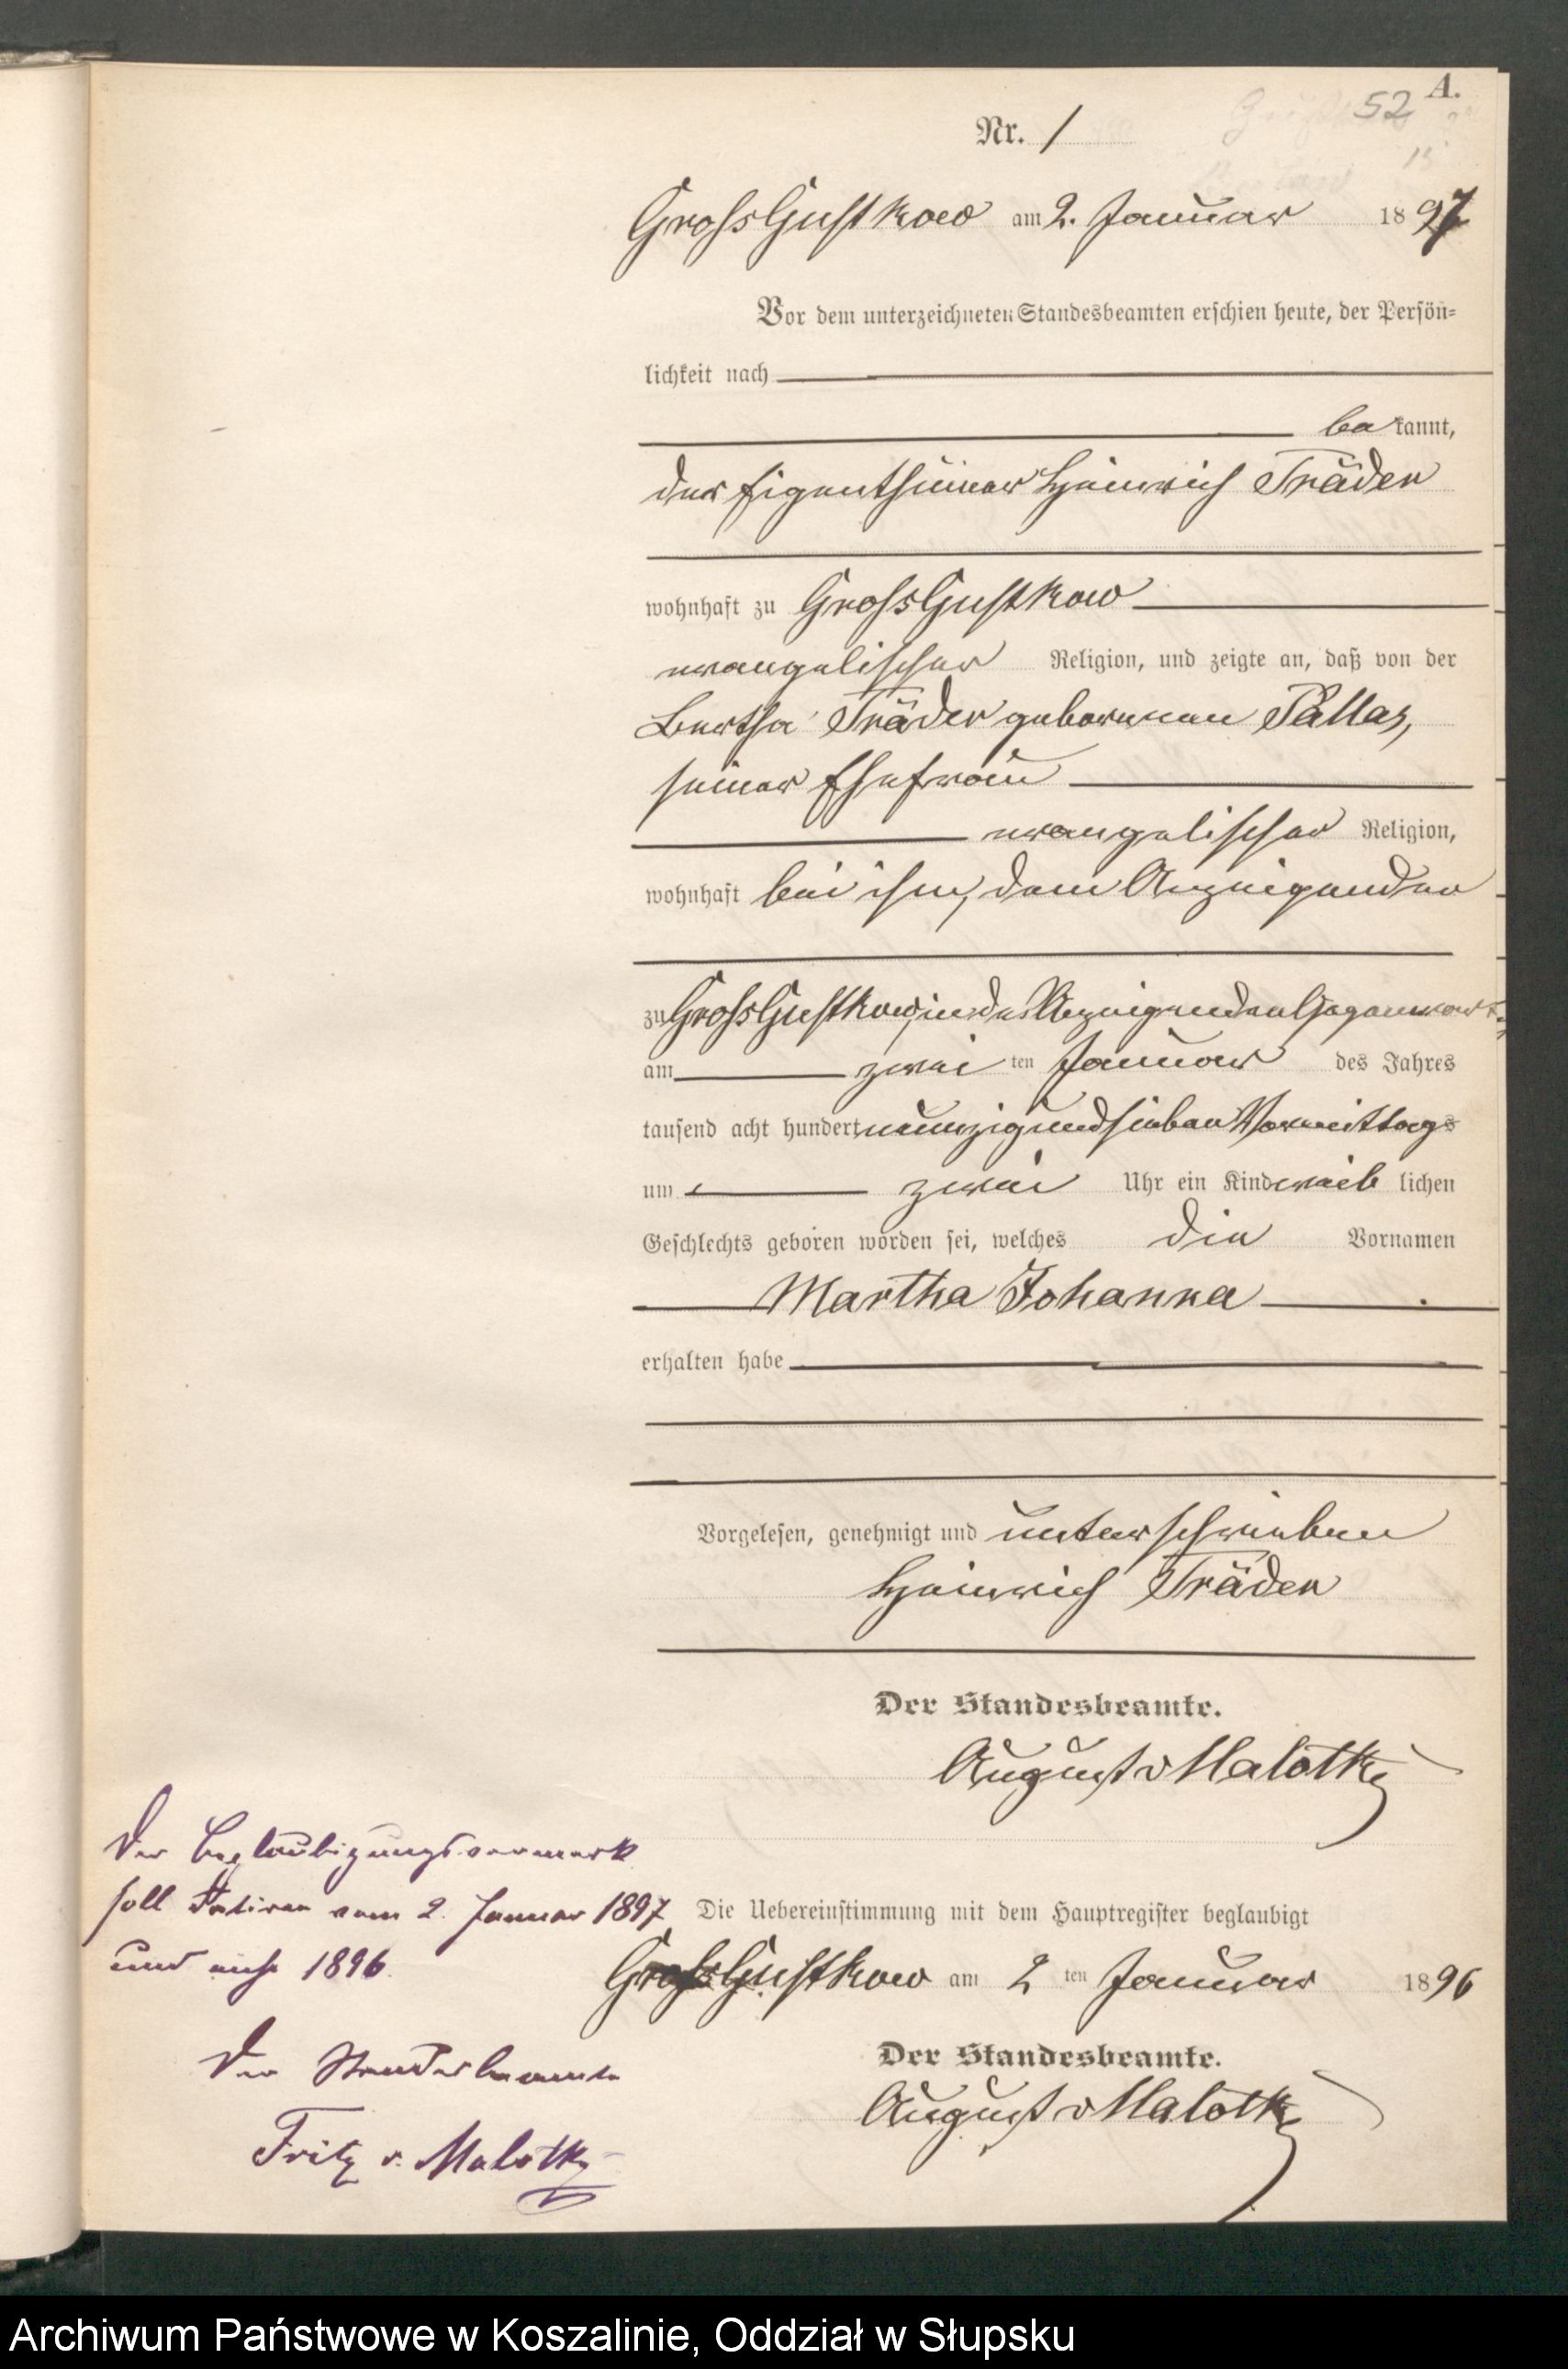 A.
52
Nr. 1
Gross Gustkow am 2. Januar 1897
Vor dem unterzeichneten Standesbeamten erschien heute, der Persön-
lichkeit nach
be kannt,
der Eigenthümer Heinrich Träder
wohnhaft zu Gross Gustkow
evangelischer Religion, und zeigte an, daß von der
Bertha Träder geborenen Pallas,
seiner Ehefrau
evangelischer Religion,
wohnhaft bei ihm, dem Anzeigenden
zu Gross Gustkow, in des Anzeigenden Gegenwart,
am zwei ten Januar des Jahres
tausend acht hundert neunzig und sieben Vormittags
um zwei Uhr ein Kind weib lichen
Geschlechts geboren worden sei, welches die Vornamen
Martha Johanna
erhalten habe
Vorgelesen, genehmigt und unterschrieben
Heinrich Träder
Der Standesbeamte.
August v Malotky
Der Beglaubigungsvermerk
soll datiren vom 2. Januar 1897
und nicht 1896.
Der Standesbeamte
Fritz v. Malotky
Die Uebereinstimmung mit dem Hauptregister beglaubigt
Gross Gustkow am 2 ten Januar 1896
Der Standesbeamte.
August v Malotky
Archiwum Państwowe w Koszalinie, Oddział w Słupsku